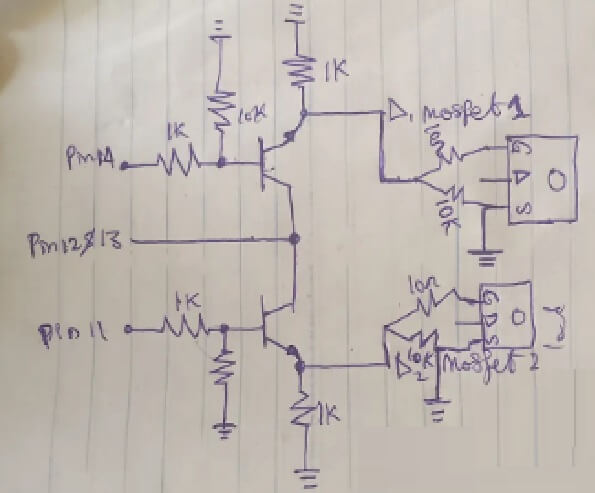 1K
10K
1K
D1 mosfet 1
10Ω
G
D
S
10K
Pin 14
Pin12&13
1K
Pin 11
10Ω
G
D
S
10K
D2
mosfet 2
1K